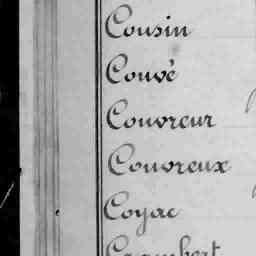 Cousin
Couvé
Couvreur
Couvreux
Coyac
Crambert